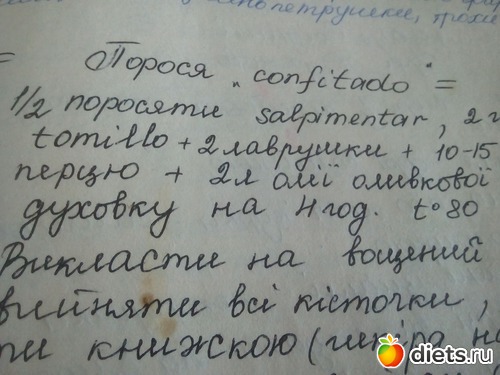 петрушки,
= Порося „confitado" =
1/2 поросяти salpimentar, 2 г
tomillo + 2 лаврушки + 10-15
перцю + 2л олії оливкової
духовку на 4 год. t° 80
Викласти на вощений
вийняти всі кісточки,
ти книжкою (шкіра на
diets.ru